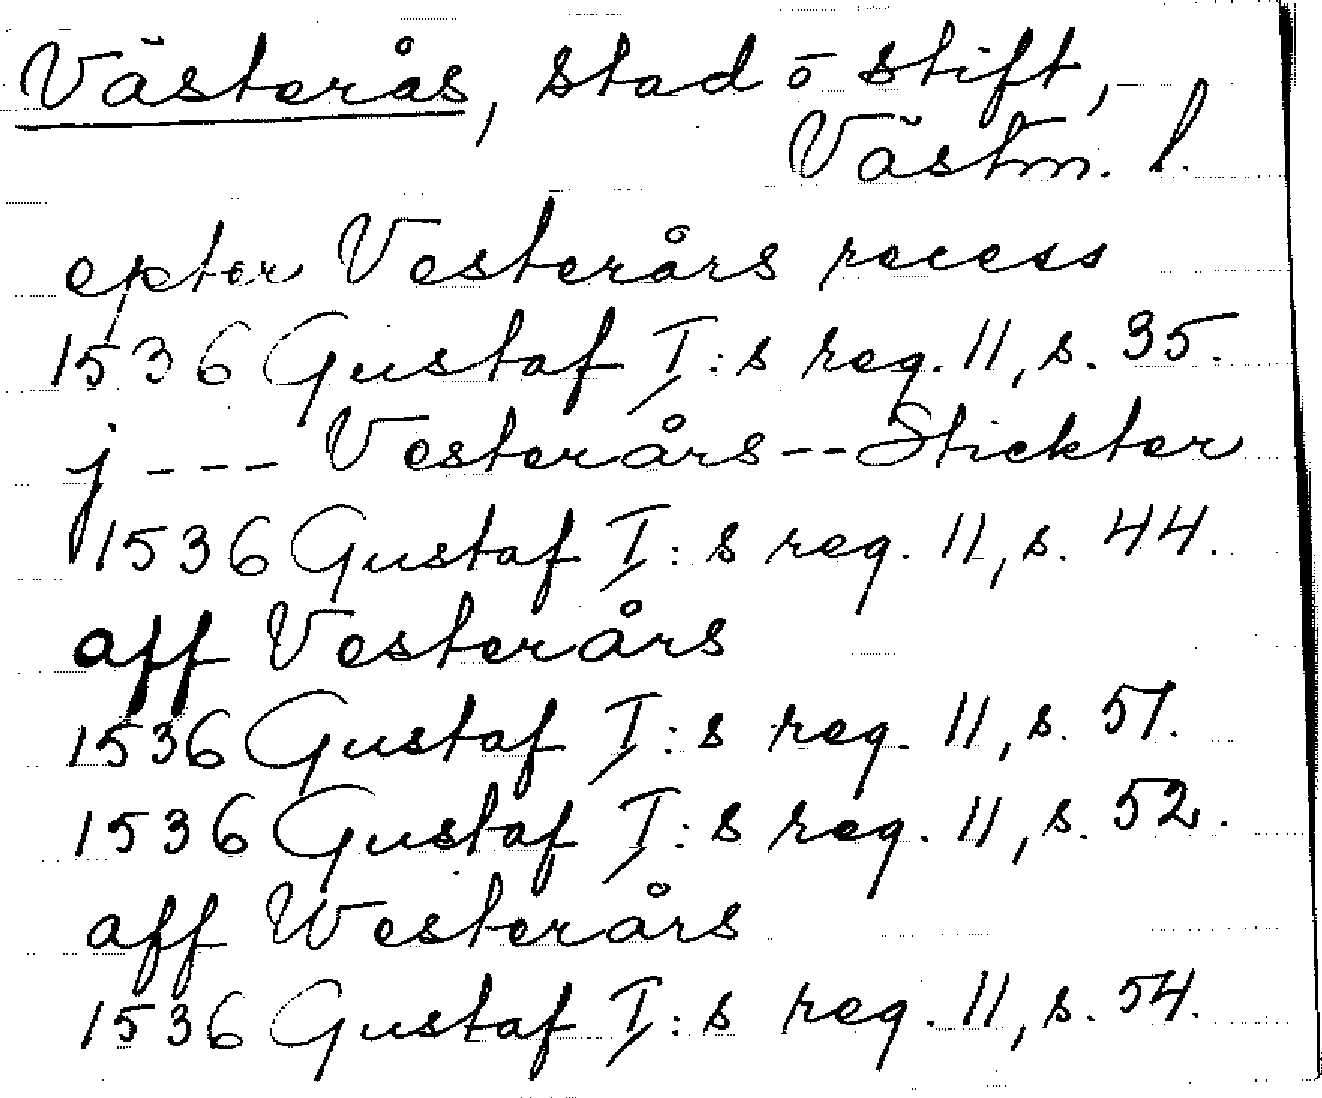 Västerås, stad o stift,
Västm. l.
epter Vesterårs recess
1536 Gustaf I:s reg. 11, s. 35.
j ---- Vesterårs -- Stickter
1536 Gustaf I:s reg. 11, s. 44.
aff Vesterårs
1536 Gustaf I:s reg. 11, s. 51.
1536 Gustaf I:s reg. 11, s. 52.
aff Westerårs
1536 Gustaf I:s reg. 11, s. 54.